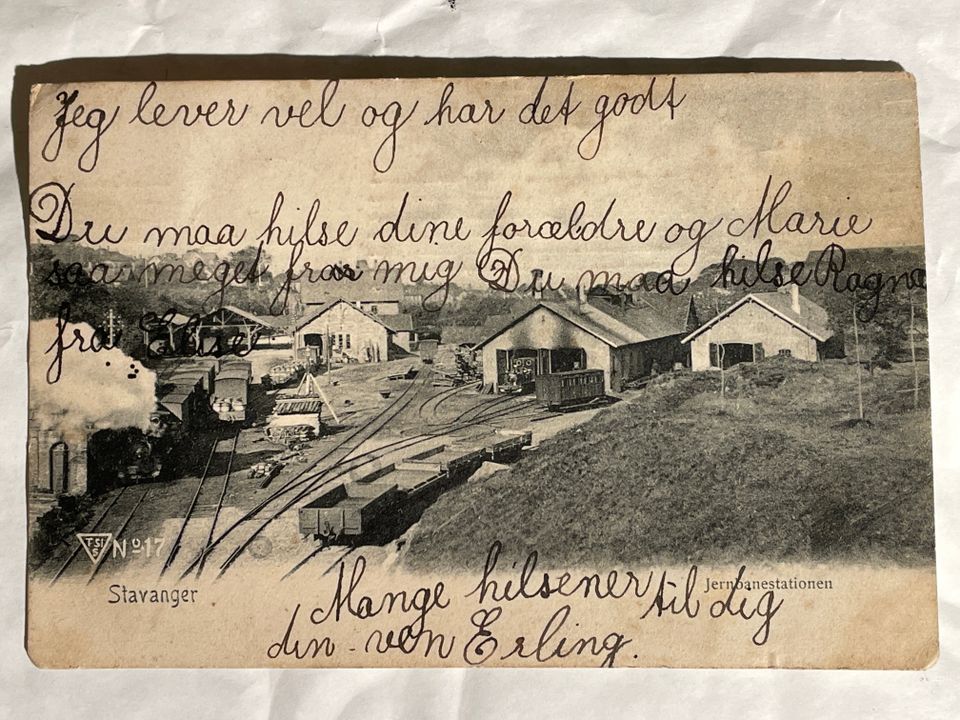 Jeg lever vel og har det godt
Du maa hilse dine forældre og Marie
saa meget fraa mig Du maa hilse Ragna
fra Elise
TSI
S
No 17
Stavanger
Jernbanestationen
Mange hilsener til dig
din ven Erling.